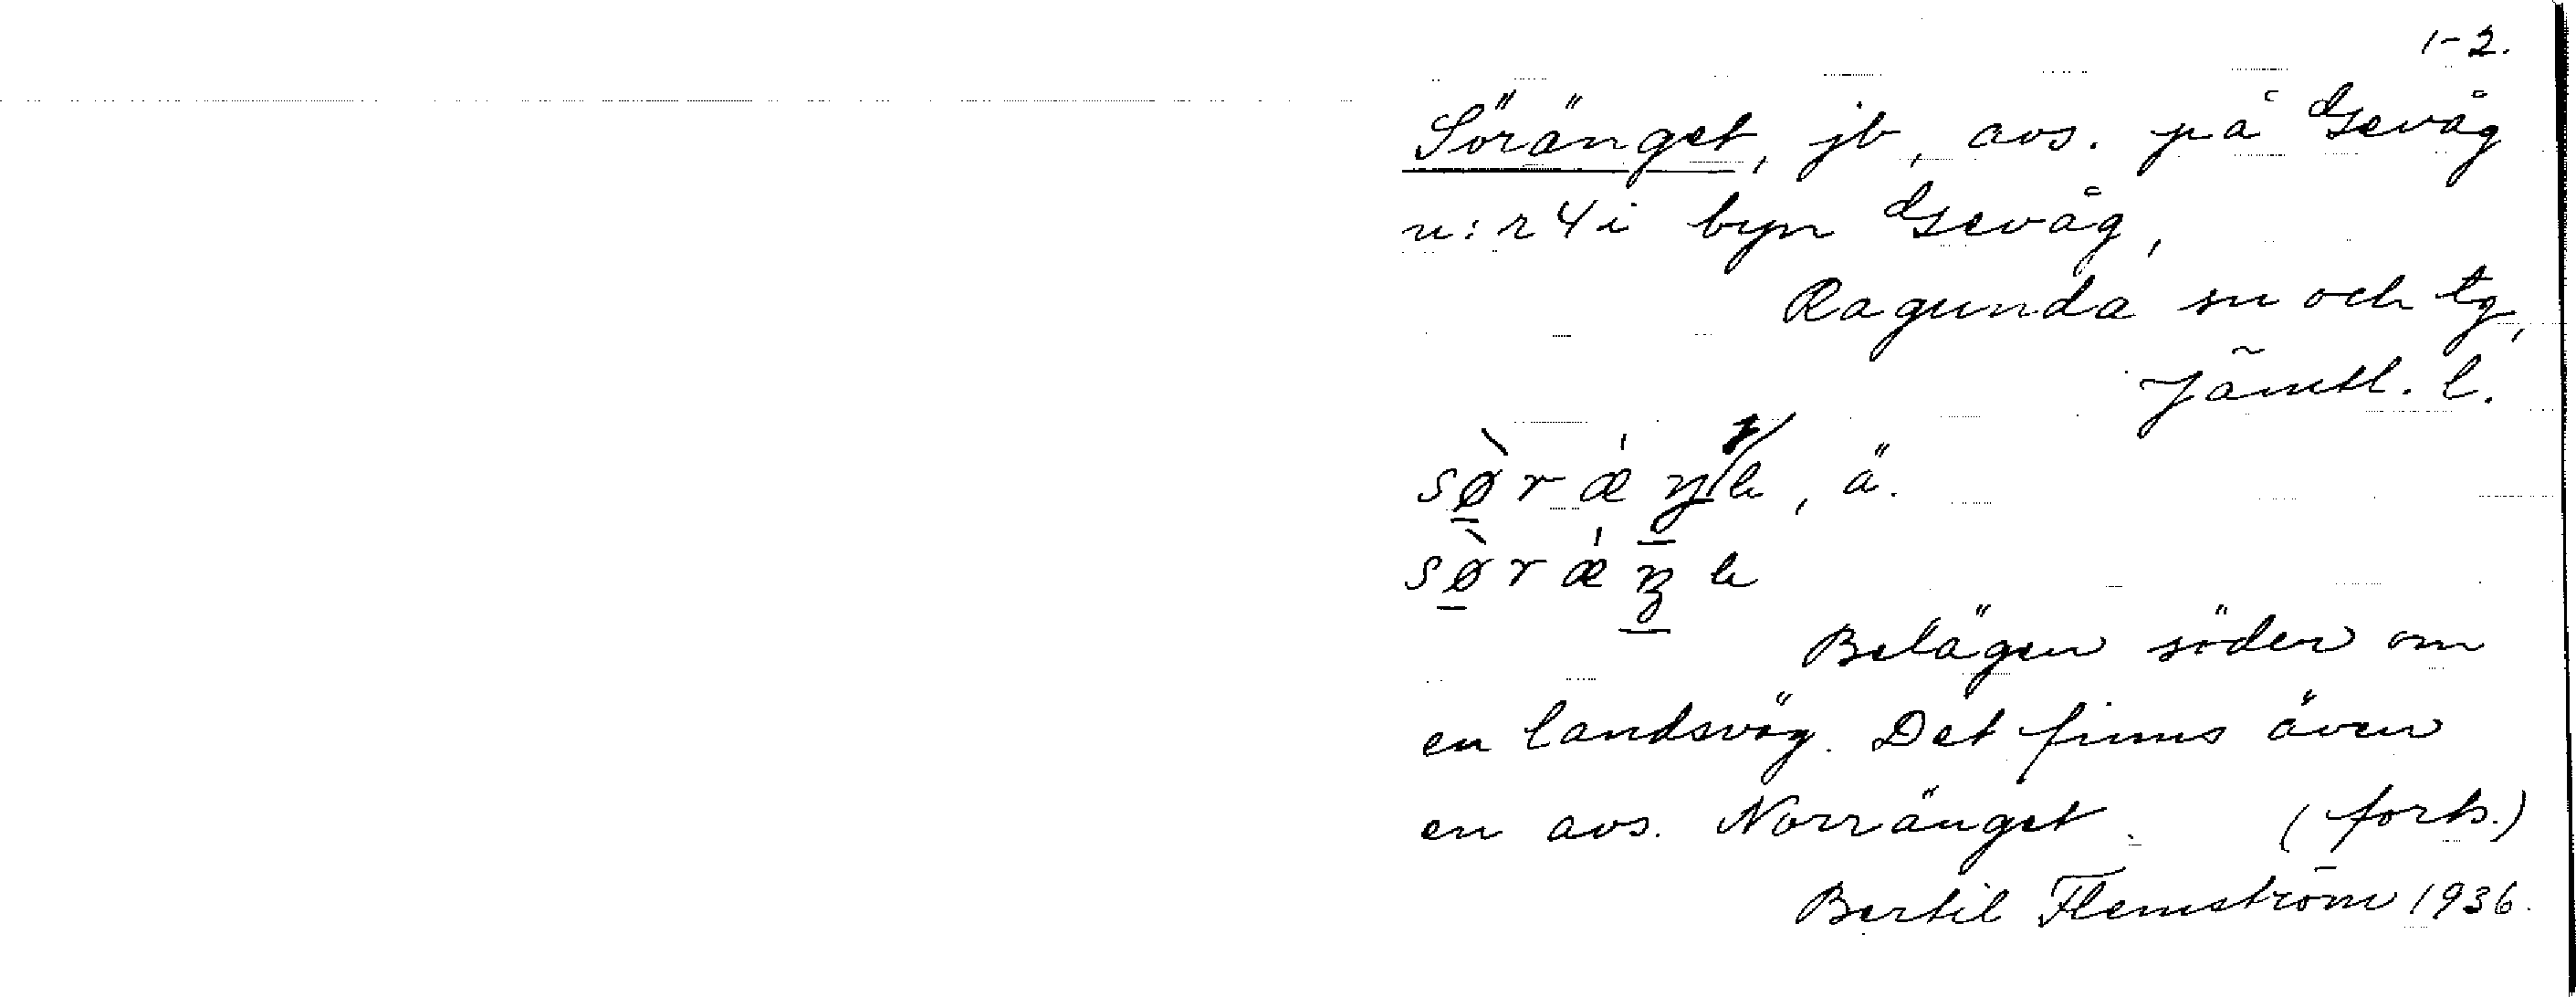 1-2.
Söränget, jb, avs. på Gevåg
n:r 4 i byn Gevåg,
Ragunda sn och tg,
Jämtl. l.
, ä.
Belägen söder om
en landsväg. Det finns även
en avs. Norränget. (forts.)
Bertil Flemström 1936.